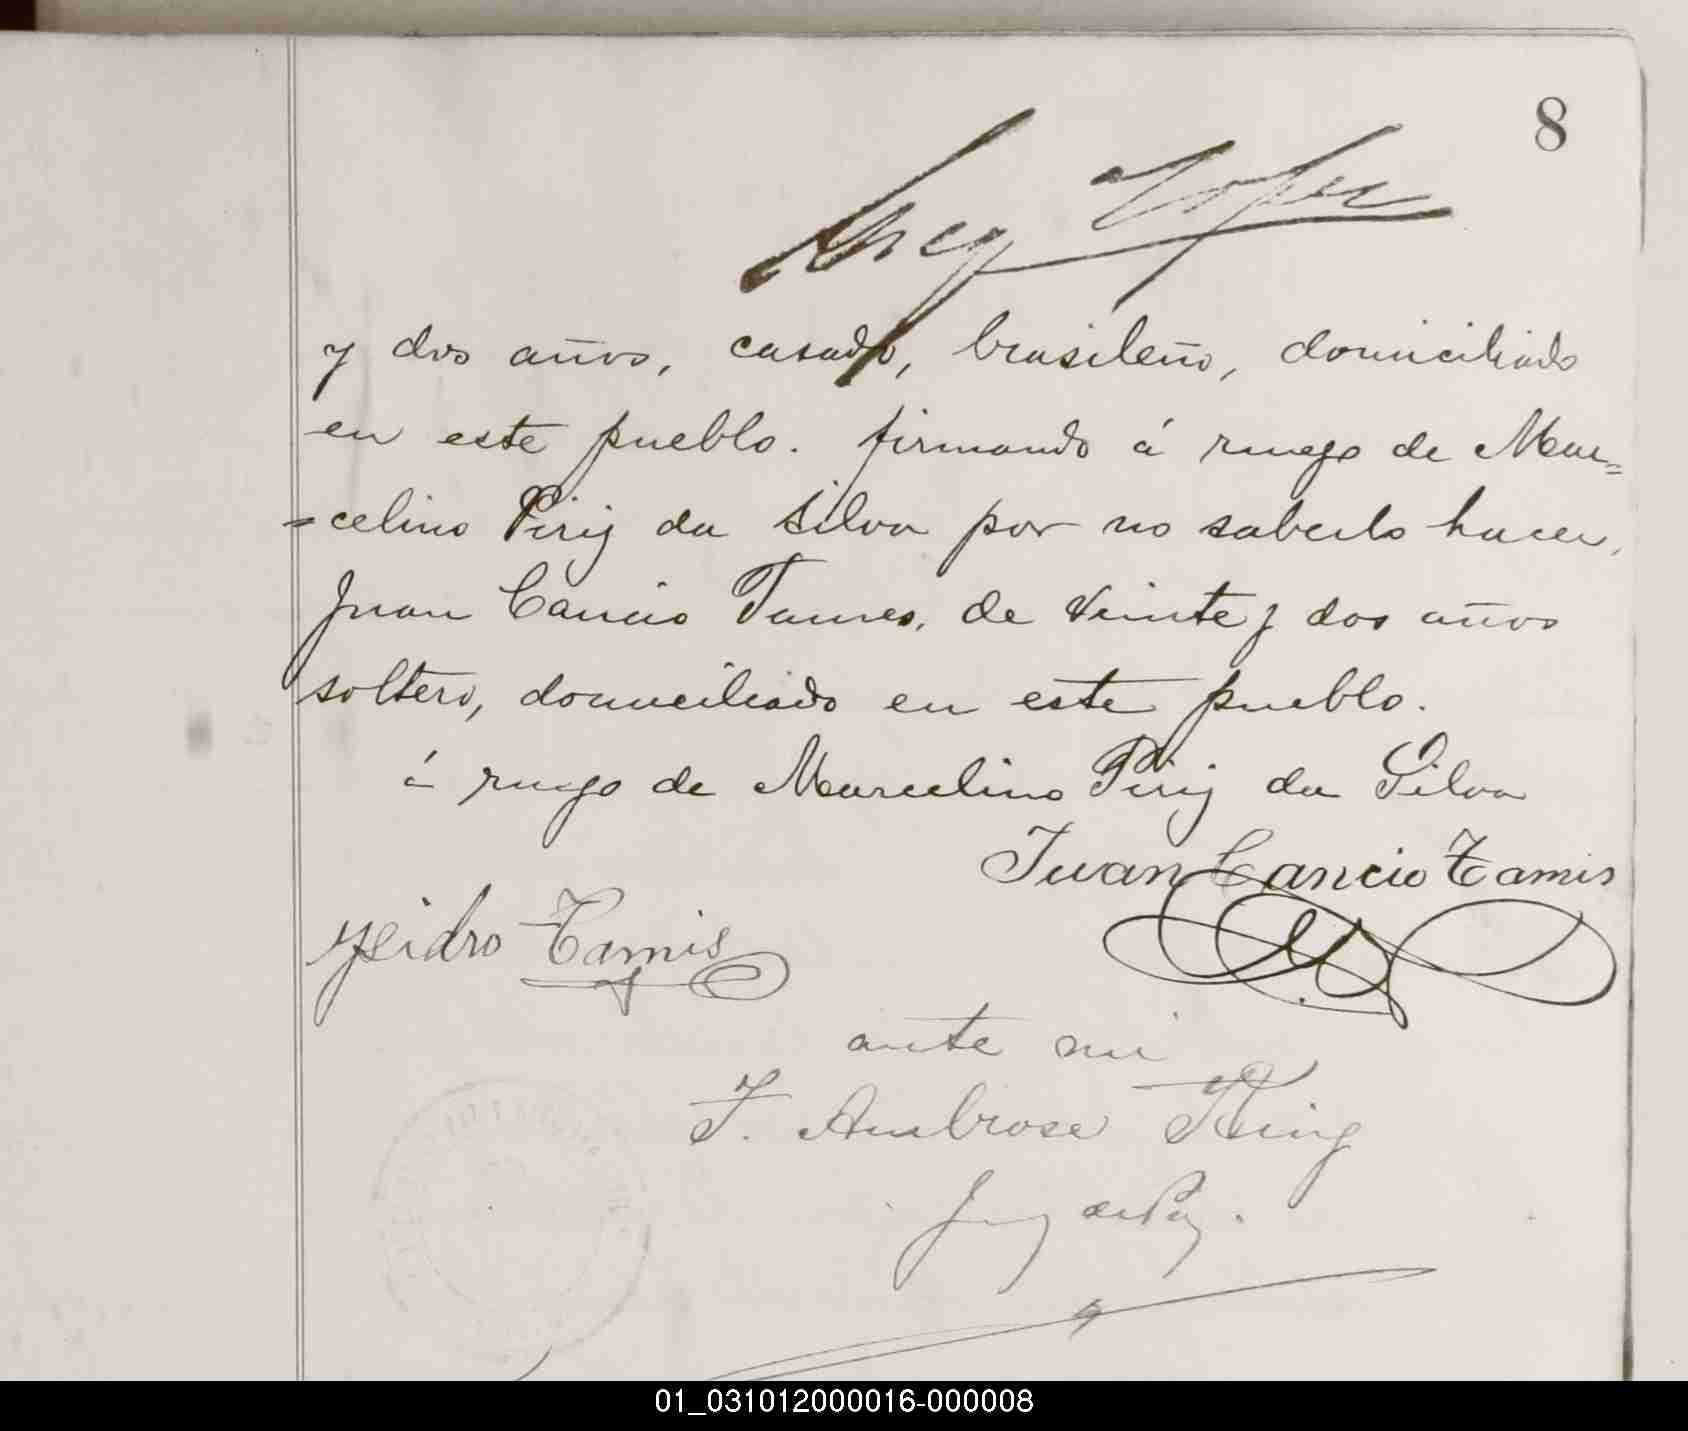 8
Lopez
y dos años, casado, brasileño, domiciliado
en este pueblo. firmando á ruego de Mar=
=celino Piriz da Silva por no saberlo hacer,
Juan Cancio Tames, de veinte y dos años
soltero, domiciliado en este pueblo.
á ruego de Marcelino Piriz da Silva
Juan Cancio Tamis
Ysidro Tamis
ante mi
F. Ambrose King
Juez de Paz.
01_031012000016-000008